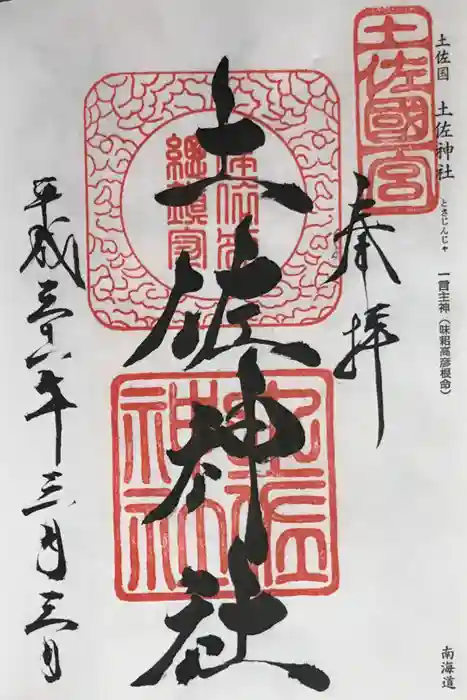 土佐国 土佐神社 とさじんじゃ 一言主神(味耜高彦根命) 南海道
土佐國一宮
奉拝
土佐神社
建依別
總鎮守
土佐
神社
平成三十一年三月三日